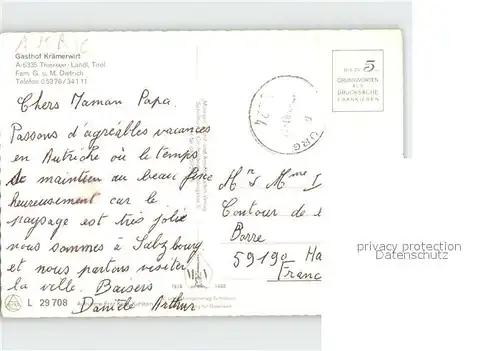 Gasthof Krämerwirt
A-6335 Thiersee-Landl, Tirol
Fam. G. u. M. Dietrich
Telefon 05376/34111
BIS ZU 5
GRUSSWORTEN
ALS
DRUCKSACHE
FRANKIEREN
Chers Maman Papa.
Passons d'agréables vacances
en Autriche où le temps
se maintien au beau fixe
heureusement car le
paysage est très jolie
nous sommes à Salzbourg
et nous partons visiter
la ville. Baisers
Danièle Arthur
Mr et Mme
Contour de
Barre
59190 Ha
Franc
privacy protection
Datenschutz
L 29708
24
URG